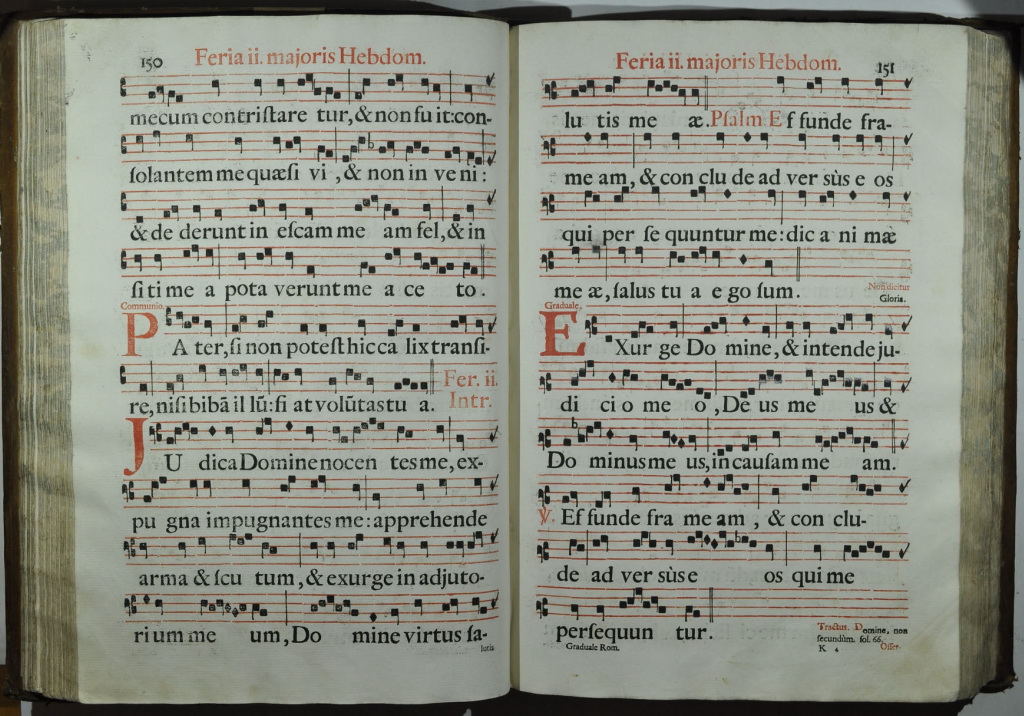 150 Feria ii. majoris Hebdom.
mecum contriſtare tur, & non fu it: con-
ſolantem me quæſi vi, & non in ve ni:
& de derunt in eſcam me am fel, & in
ſi ti me a pota verunt me a ce to.
Communio.
PA ter, ſi non poteſt hic ca lix tranſi-
re, niſi bibā il lū: fi at volūtas tu a. Fer. ii.
Intr.
JU dica Domine nocen tes me, ex-
pu gna impugnantes me: apprehende
arma & ſcu tum, & exurge in adjuto-
ri um me um, Do mine virtus ſa-
lutis
Feria ii. majoris Hebdom. 151
lu tis me æ. Pſalm Ef funde fra-
me am, & con clu de ad ver sùs e os
qui per ſe quuntur me: dic a ni mæ
me æ, ſalus tu a e go ſum. Non dicitur
Gloria.
Graduale.
EXur ge Do mine, & intende ju-
di ci o me o, De us me us &
Do minus me us, in cauſam me am.
V. Ef funde fra me am, & con clu-
de ad ver sùs e os qui me
perſequun tur.
Tractus. Domine, non
ſecundùm. fol. 66.
Graduale Rom. K 4 Offer.